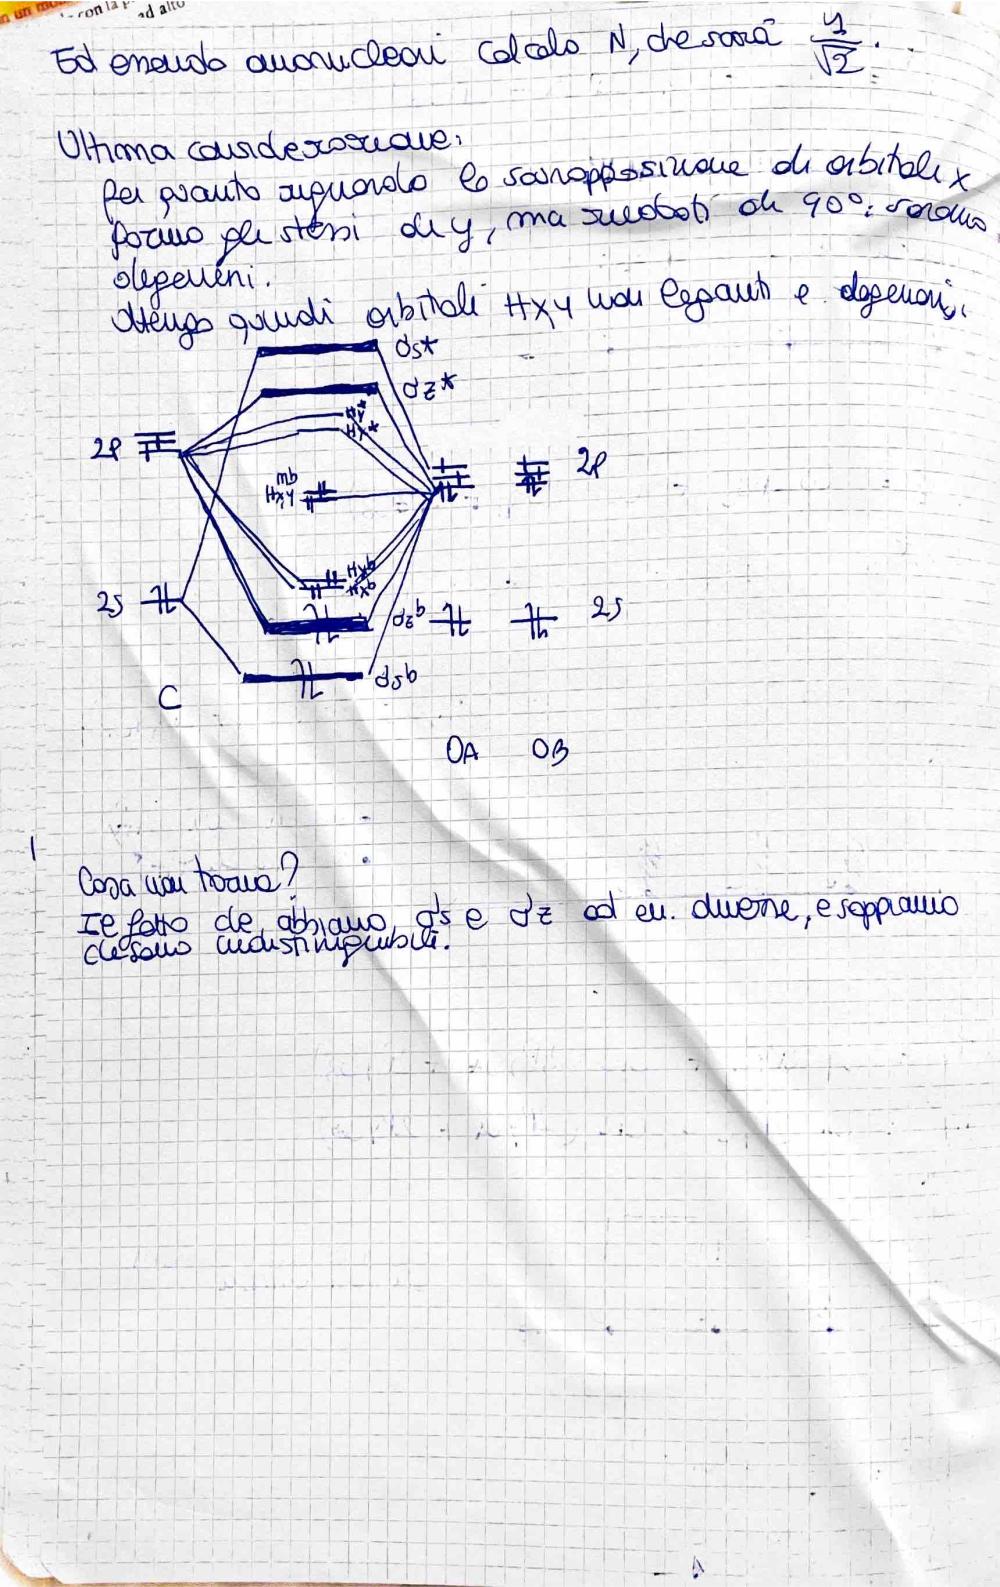 con la p
ad alto
Ed essendo omonucleari calcolo N, che sarà 1/√2.
Ultima considerazione:
Per quanto riguarda la sovrapposizione di orbitali x
formo gli stessi di y, ma ruotati di 90°: saranno
degeneri.
Ottengo quindi orbitali πx,y non leganti e degeneri.
σs*
σz*
πy*
πx*
2p
2p
nb
πx,y
πxb
πxb
2s
σzb
2s
σsb
C
OA OB
Cosa non torna?
Il fatto che abbiamo σs e σz ad en. diverse, e sappiamo
che sono indistinguibili.